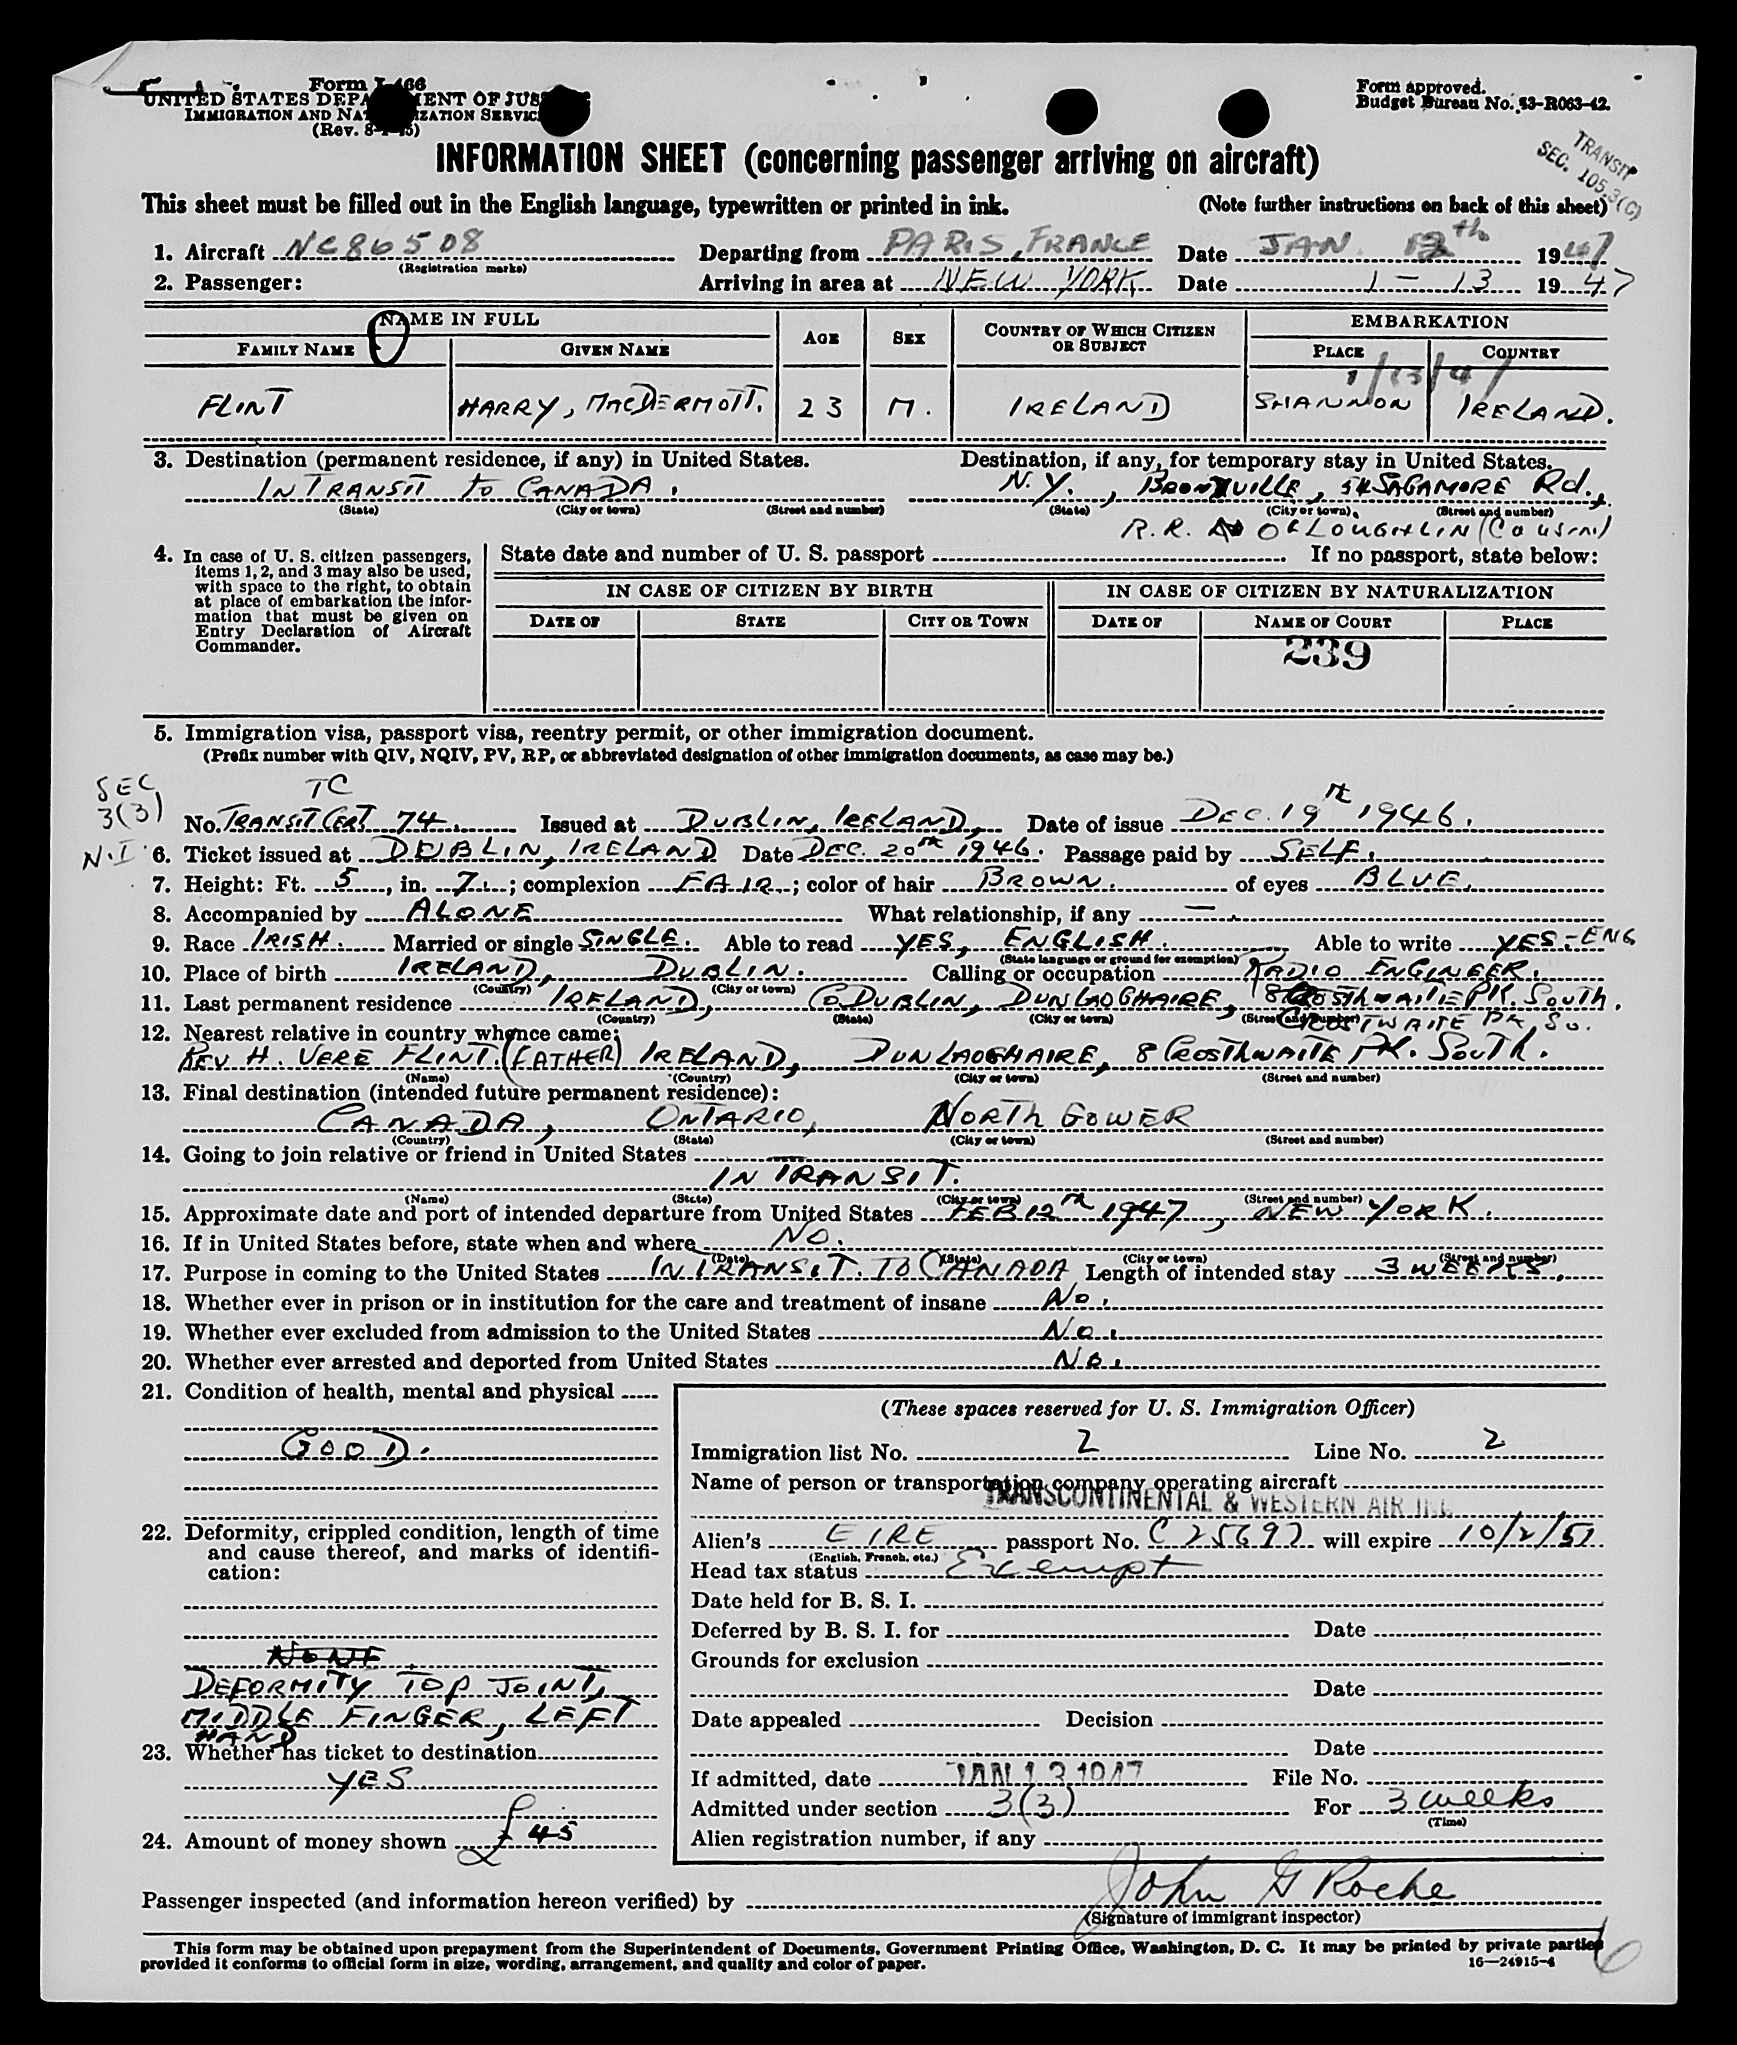 Form I-466
UNITED STATES DEPARTMENT OF JUSTICE
IMMIGRATION AND NATURALIZATION SERVICE
(Rev. 8-1-45)
Form approved.
Budget Bureau No. 43-R063-42.
TRANSIT
SEC. 105.3(C)
INFORMATION SHEET (concerning passenger arriving on aircraft)
This sheet must be filled out in the English language, typewritten or printed in ink. (Note further instructions on back of this sheet)
1. Aircraft NC86508 Departing from PARIS, FRANCE Date JAN. 12th 1947
(Registration marks)
2. Passenger: Arriving in area at NEW YORK, Date 1-13 1947
NAME IN FULL AGE SEX COUNTRY OF WHICH CITIZEN OR SUBJECT EMBARKATION
FAMILY NAME GIVEN NAME PLACE COUNTRY
1/13/47
FLINT HARRY, MACDERMOTT. 23 M. IRELAND SHANNON IRELAND.
3. Destination (permanent residence, if any) in United States. Destination, if any, for temporary stay in United States.
IN TRANSIT to CANADA. N.Y., BRONXVILLE, 54 SAGAMORE Rd.,
(State) (City or town) (Street and number) (State) (City or town) (Street and number)
R.R. O'LOUGHLIN (Cousin)
4. In case of U. S. citizen passengers, items 1, 2, and 3 may also be used, with space to the right, to obtain at place of embarkation the information that must be given on Entry Declaration of Aircraft Commander.
State date and number of U. S. passport If no passport, state below:
IN CASE OF CITIZEN BY BIRTH IN CASE OF CITIZEN BY NATURALIZATION
DATE OF STATE CITY OR TOWN DATE OF NAME OF COURT PLACE
239
5. Immigration visa, passport visa, reentry permit, or other immigration document.
(Prefix number with QIV, NQIV, PV, RP, or abbreviated designation of other immigration documents, as case may be.)
SEC 3(3) TC
No. TRANSIT CERT 74. Issued at DUBLIN, IRELAND, Date of issue DEC. 19th 1946.
N.I. 6. Ticket issued at DUBLIN, IRELAND Date DEC. 20th 1946. Passage paid by SELF.
7. Height: Ft. 5, in. 7.; complexion FAIR; color of hair BROWN. of eyes BLUE.
8. Accompanied by ALONE What relationship, if any —.
9. Race IRISH. Married or single SINGLE. Able to read YES, ENGLISH. Able to write YES-ENG
(State language or ground for exemption)
10. Place of birth IRELAND, DUBLIN. Calling or occupation RADIO ENGINEER.
(Country) (City or town)
11. Last permanent residence IRELAND, CO DUBLIN, DUN LAOGHAIRE, 8 CROSTHWAITE PK. SOUTH.
(Country) (State) (City or town) (Street and number)
CROSTWAITE PK, SO.
12. Nearest relative in country whence came:
REV H. VERE FLINT. (FATHER) IRELAND, DUN LAOGHAIRE, 8 CROSTHWAITE PK. SOUTH.
(Name) (Country) (City or town) (Street and number)
13. Final destination (intended future permanent residence):
CANADA, ONTARIO, NORTH GOWER
(Country) (State) (City or town) (Street and number)
14. Going to join relative or friend in United States —
IN TRANSIT.
(Name) (State) (City or town) (Street and number)
15. Approximate date and port of intended departure from United States FEB 12th 1947, NEW YORK.
16. If in United States before, state when and where NO.
(Date) (State) (City or town) (Street and number)
17. Purpose in coming to the United States IN TRANSIT. TO CANADA Length of intended stay 3 WEEKS.
18. Whether ever in prison or in institution for the care and treatment of insane No.
19. Whether ever excluded from admission to the United States No.
20. Whether ever arrested and deported from United States No.
21. Condition of health, mental and physical
GOOD.
22. Deformity, crippled condition, length of time and cause thereof, and marks of identification:
NONE.
DEFORMITY TOP JOINT,
MIDDLE FINGER, LEFT
HAND
23. Whether has ticket to destination
YES
24. Amount of money shown £45
(These spaces reserved for U. S. Immigration Officer)
Immigration list No. 2 Line No. 2
Name of person or transportation company operating aircraft
TRANSCONTINENTAL & WESTERN AIR INC
Alien's EIRE passport No. C 25697 will expire 10/2/51
(English, French, etc.)
Head tax status Exempt
Date held for B. S. I.
Deferred by B. S. I. for Date
Grounds for exclusion
Date
Date appealed Decision
Date
If admitted, date JAN 13 1947 File No.
Admitted under section 3(3) For 3 weeks
(Time)
Alien registration number, if any
Passenger inspected (and information hereon verified) by John G Roche
(Signature of immigrant inspector)
This form may be obtained upon prepayment from the Superintendent of Documents, Government Printing Office, Washington, D. C. It may be printed by private parties
provided it conforms to official form in size, wording, arrangement, and quality and color of paper.
16—24915-4